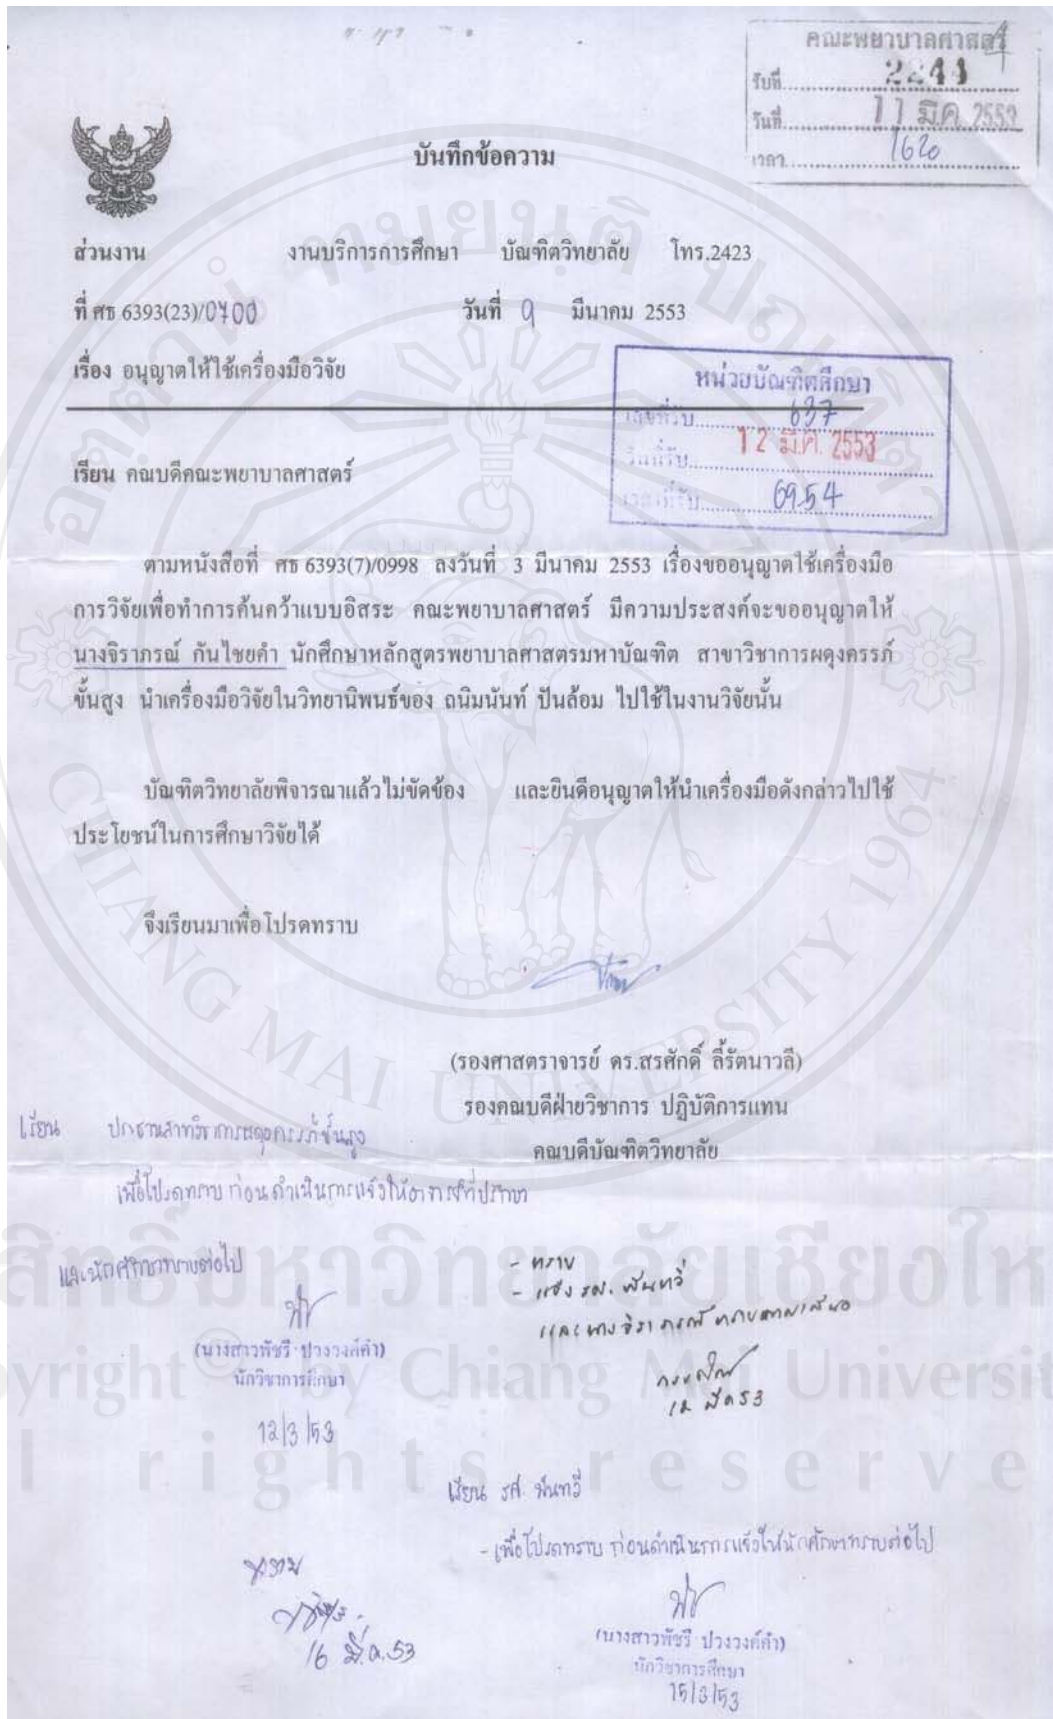 คณะพยาบาลศาสตร์
รับที่ 2244
วันที่ 11 มี.ค. 2553
เวลา 1620
บันทึกข้อความ
ส่วนงาน งานบริการการศึกษา บัณฑิตวิทยาลัย โทร.2423
ที่ ศธ 6393(23)/0700 วันที่ 9 มีนาคม 2553
เรื่อง อนุญาตให้ใช้เครื่องมือวิจัย
หน่วยบัณฑิตศึกษา
เลขที่รับ 637
วันที่รับ 12 มี.ค. 2553
เวลาที่รับ 09.54
เรียน คณบดีคณะพยาบาลศาสตร์
ตามหนังสือที่ ศธ 6393(7)/0998 ลงวันที่ 3 มีนาคม 2553 เรื่องขออนุญาตใช้เครื่องมือ
การวิจัยเพื่อทำการค้นคว้าแบบอิสระ คณะพยาบาลศาสตร์ มีความประสงค์จะขออนุญาตให้
นางจิราภรณ์ กันไชยคำ นักศึกษาหลักสูตรพยาบาลศาสตรมหาบัณฑิต สาขาวิชาการผดุงครรภ์
ขั้นสูง นำเครื่องมือวิจัยในวิทยานิพนธ์ของ ถนิมนันท์ ปันล้อม ไปใช้ในงานวิจัยนั้น
บัณฑิตวิทยาลัยพิจารณาแล้วไม่ขัดข้อง และยินดีอนุญาตให้นำเครื่องมือดังกล่าวไปใช้
ประโยชน์ในการศึกษาวิจัยได้
จึงเรียนมาเพื่อโปรดทราบ
(รองศาสตราจารย์ ดร.สรศักดิ์ ลี้รัตนาวลี)
รองคณบดีฝ่ายวิชาการ ปฏิบัติการแทน
คณบดีบัณฑิตวิทยาลัย
เรียน ประธานสาขาวิชาการผดุงครรภ์ขั้นสูง
เพื่อโปรดทราบ ก่อนดำเนินการแจ้งให้อาจารย์ที่ปรึกษา
และนักศึกษาทราบต่อไป
(นางสาวพัชรี ปวงวงค์คำ)
นักวิชาการศึกษา
12/3/53
- ทราบ
- แจ้ง รศ. พันทวี
และนางจิราภรณ์ ทราบตามเสนอ
12 มีค 53
เรียน รศ. พันทวี
- เพื่อโปรดทราบ ก่อนดำเนินการแจ้งให้นักศึกษาทราบต่อไป
(นางสาวพัชรี ปวงวงค์คำ)
นักวิชาการศึกษา
15/3/53
ทราบ
16 มี.ค.53
CHIANG MAI UNIVERSITY 1964
สิทธิ์มหาวิทยาลัยเชียงให
yright © by Chiang Mai Universit
l rights reserve